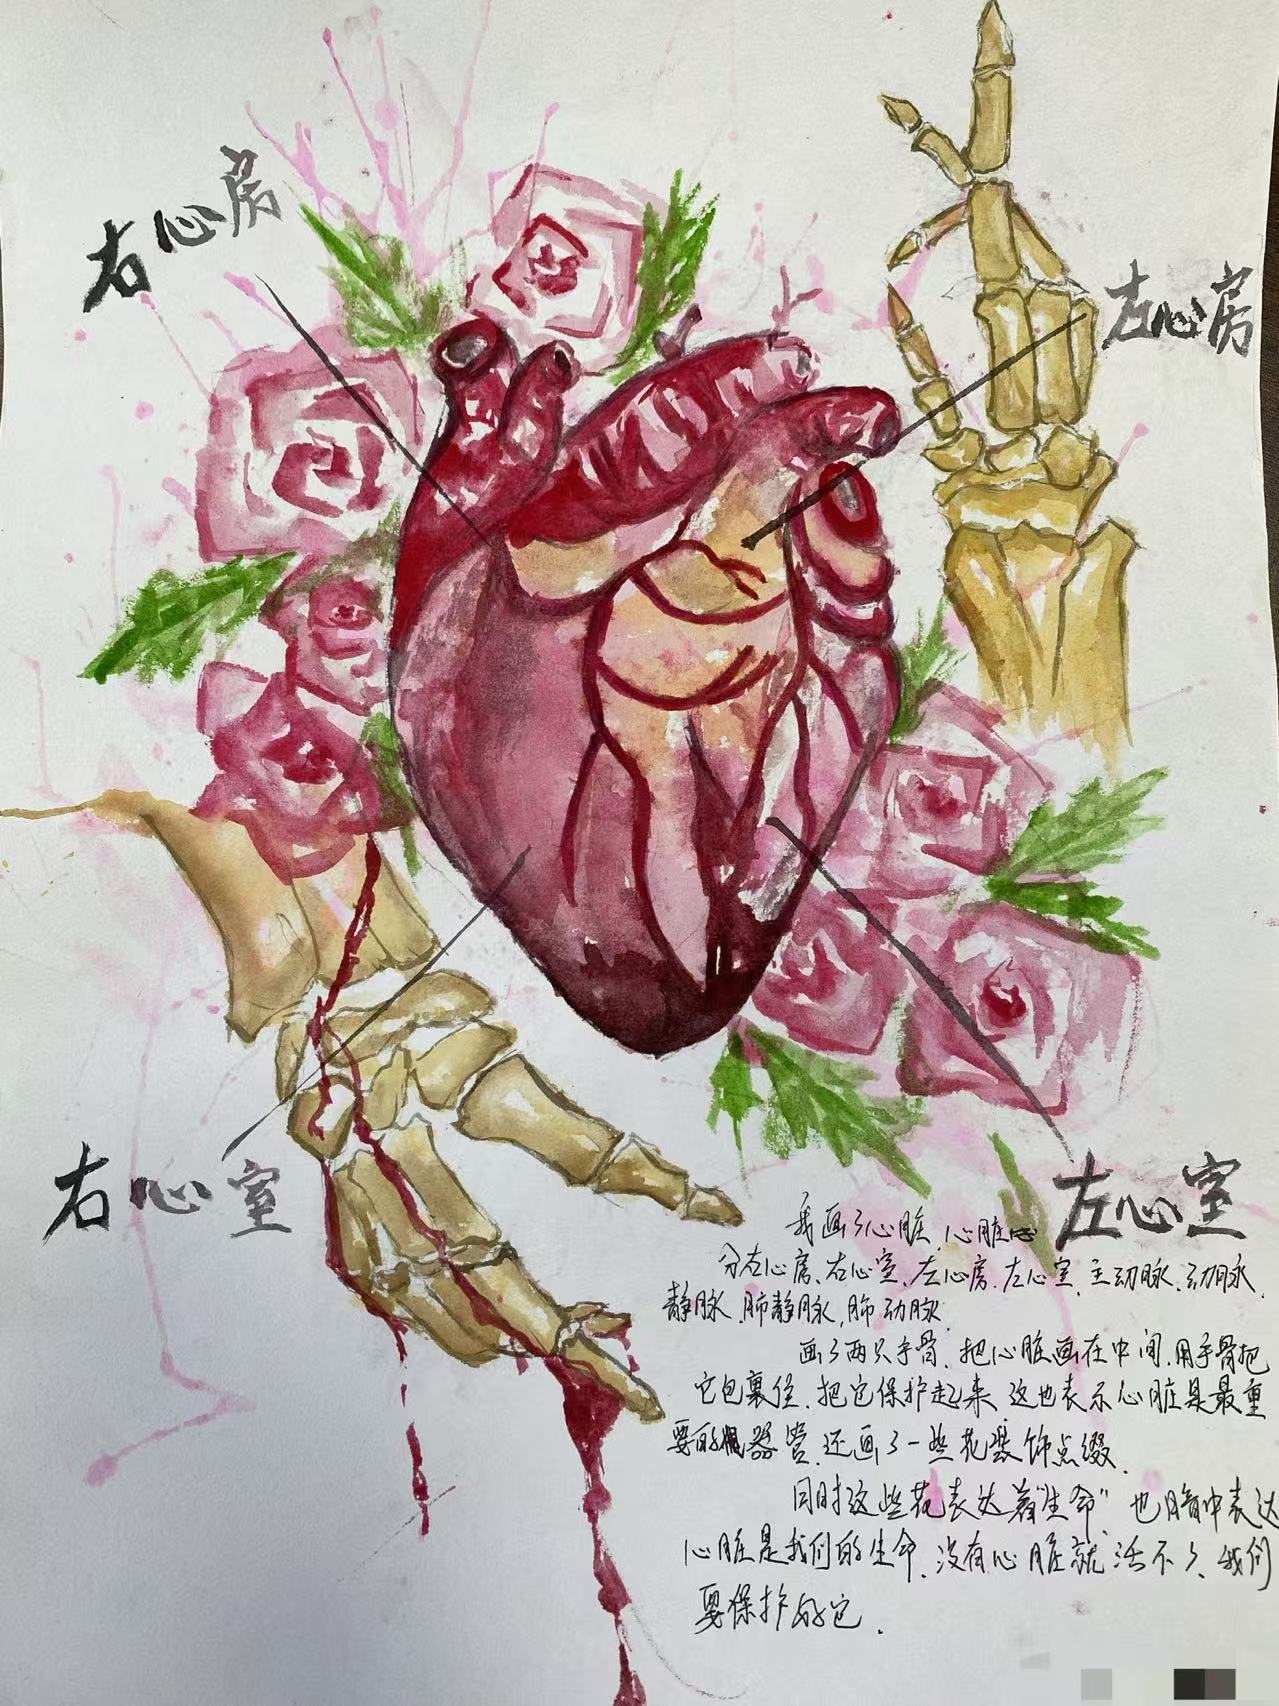 右心房
左心房
右心室
左心室
我画了心脏,心脏
分右心房、右心室、左心房、左心室、主动脉、动脉、
静脉、肺静脉,肺动脉.
画了两只手骨,把心脏画在中间,用手骨把
它包裹住,把它保护起来,这也表示心脏是最重
要的器官,还画了一些花装饰点缀.
同时这些花表达着"生命",也暗中表达
心脏是我们的生命,没有心脏就活不了,我们
要保护好它.